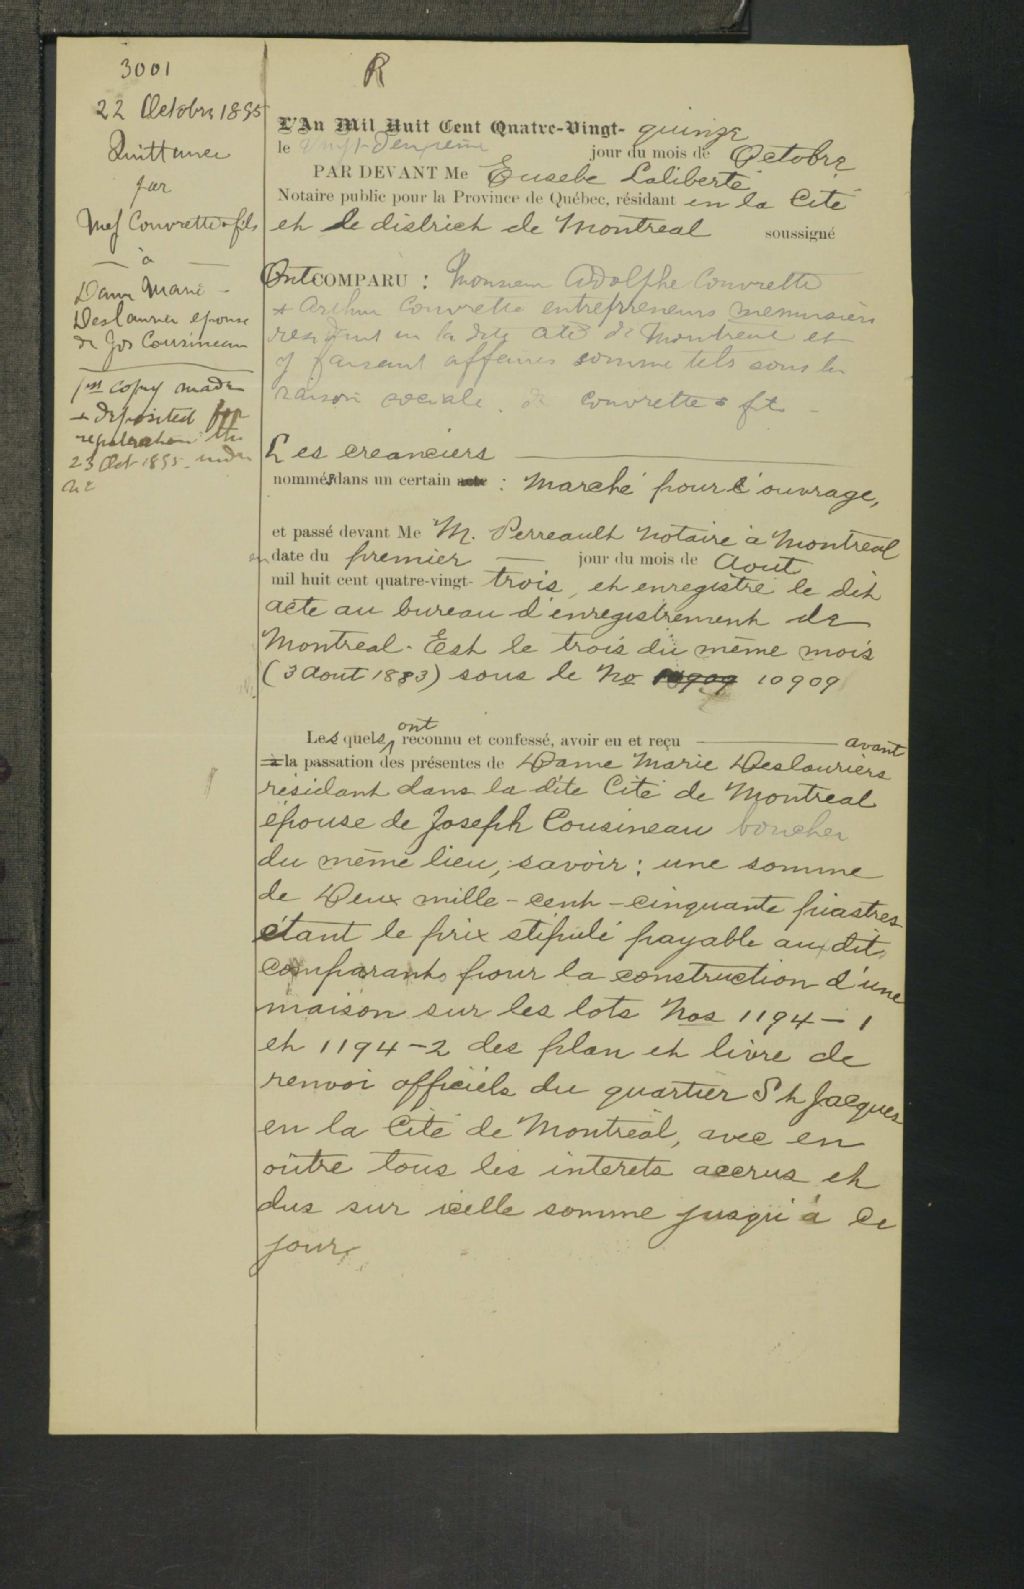 3001
R
22 Octobre 1895
Quittance
par
Mess Couvrette & fils
à
Dame Marie
Deslaurier épouse
de Jos Cousineau
1ere copy made
& deposited for
registration the
23 Oct 1895 under
No
L'An Mil Huit Cent Quatre-Vingt- quinze
le Vingt-deuxieme jour du mois de Octobre
PAR DEVANT Me Eusebe Laliberté
Notaire public pour la Province de Québec, résidant en la Cité
et le district de Montreal soussigné
Ont COMPARU : Monsieur Adolphe Couvrette
& Arthur Couvrette entrepreneurs menuisiers
residant en la dite Cité de Montreal et
y faisant affaires comme tels sous la
raison sociale de Couvrette & fils
Les creanciers
nommés dans un certain acte : Marché pour l'ouvrage,
et passé devant Me M. Perreault Notaire à Montreal
en date du premier jour du mois de Aout
mil huit cent quatre-vingt- trois, et enregistré le dit
acte au bureau d'enregistrement de
Montreal-Est le trois du même mois
(3 Aout 1883) sous le No 10909 10909
Les quels, ont reconnu et confessé, avoir eu et reçu avant
à la passation des présentes de Dame Marie Deslauriers
résidant dans la dite Cité de Montreal
épouse de Joseph Cousineau boucher
du même lieu, savoir : une somme
de Deux mille-cent-cinquante piastres
étant le prix stipulé payable aux dits
comparants pour la construction d'une
maison sur les lots Nos 1194-1
et 1194-2 des plan et livre de
renvoi officiels du quartier St Jacques
en la Cité de Montréal, avec en
oûtre tous les interets accrus et
dus sur icelle somme jusqu'à ce
jour.